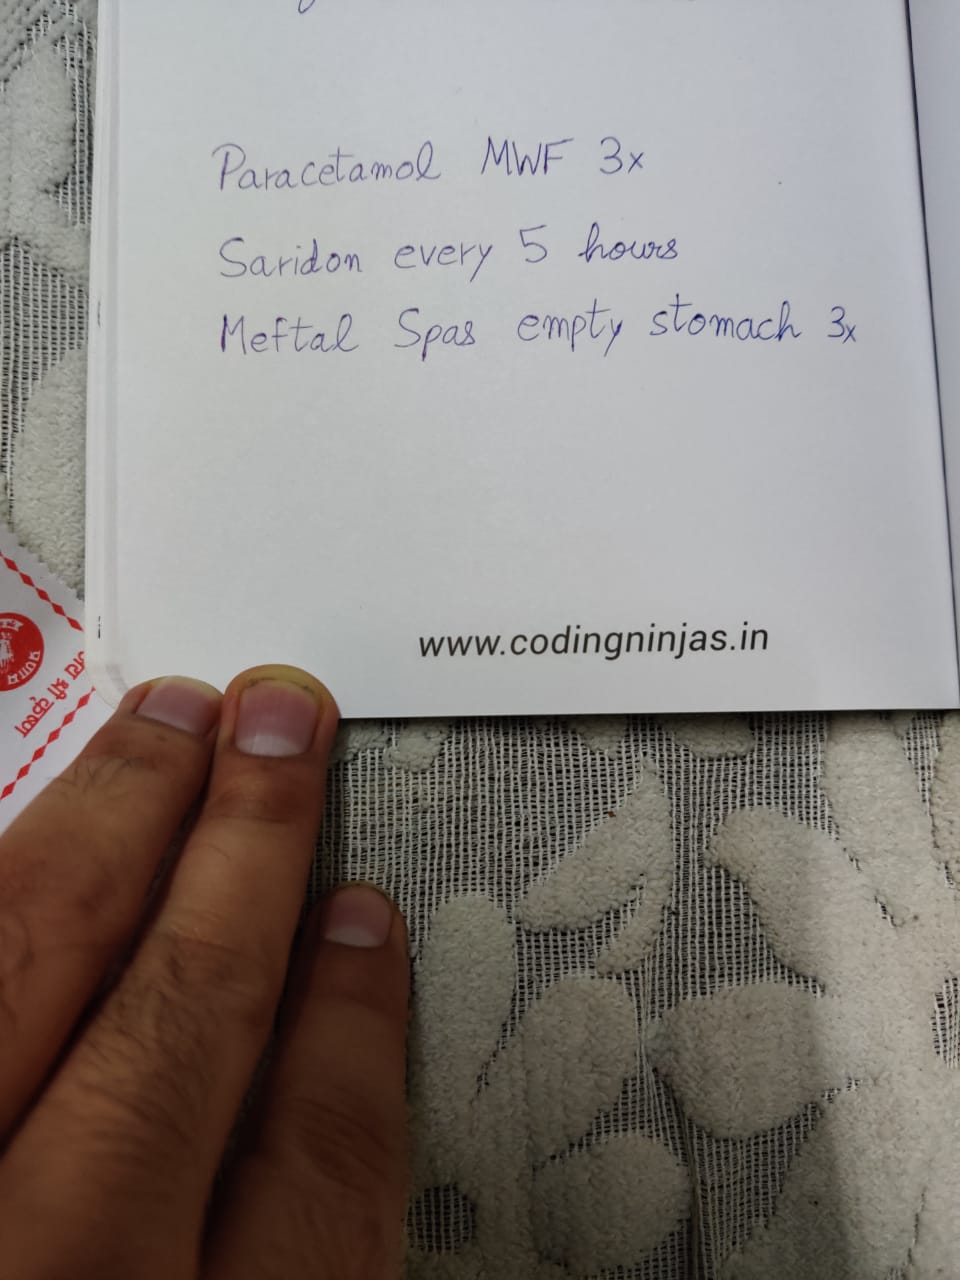 Paracetamol MWF 3x
Saridon every 5 hours
Meftal Spas empty stomach 3x
www.codingninjas.in